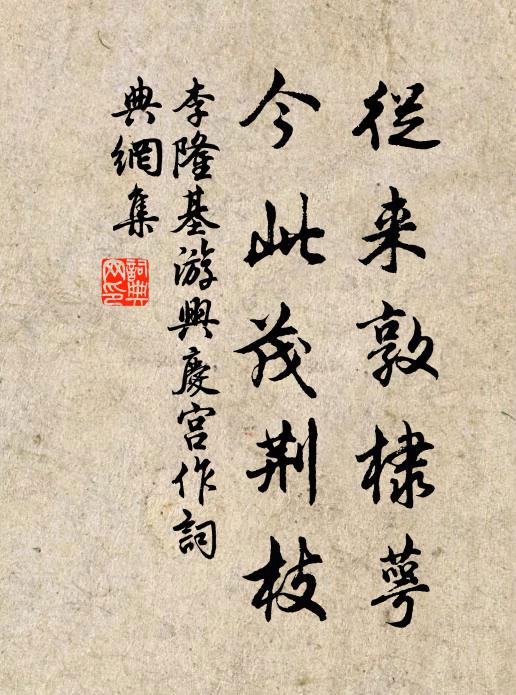 從来敦棣萼
今此茂荆枝
李隆基游興慶宮作詞
典網集
詞典
网印